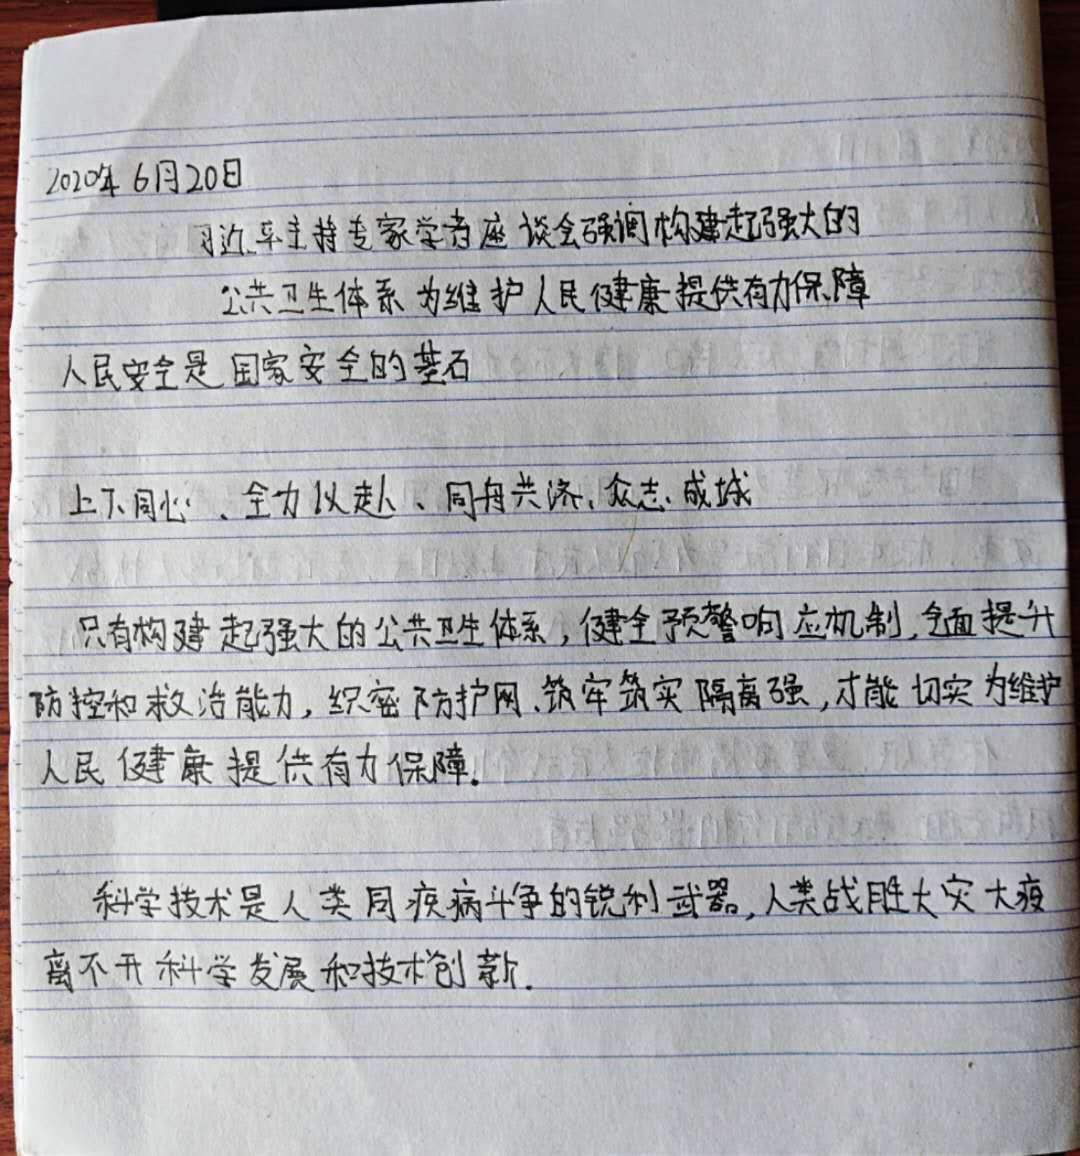 2020年6月20日
习近平主持专家学者座谈会强调构建起强大的
公共卫生体系为维护人民健康提供有力保障
人民安全是国家安全的基石
上下同心、全力以赴、同舟共济、众志成城
只有构建起强大的公共卫生体系，健全预警响应机制，全面提升
防控和救治能力，织密防护网、筑牢筑实隔离强，才能切实为维护
人民健康提供有力保障.
科学技术是人类同疾病斗争的锐利武器，人类战胜大灾大疫
离不开科学发展和技术创新.